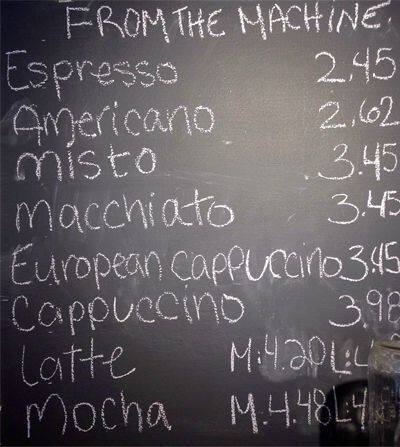 FROM THE MACHINE.
Espresso 2.45
Americano 2.62
misto 3.45
macchiato 3.45
European cappuccino 3.45
Cappuccino 3.98
Latte M:4.20 L:
Mocha M.4.48 L: